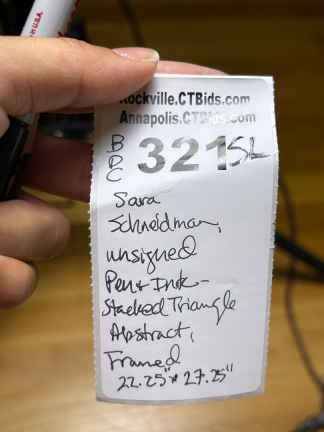 Rockville.CTBids.com
Annapolis.CTBids.com
B
D
C
321SL
Sara
Schneidman,
unsigned
Pen & Ink -
Stacked Triangle
Abstract,
Framed
22.25" x 27.25"